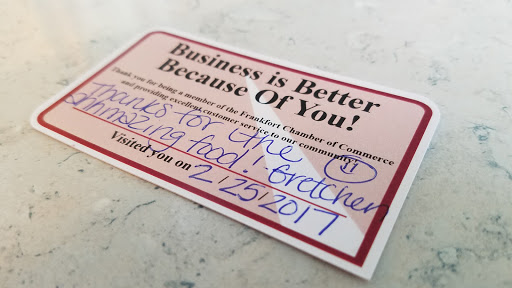 Business is Better
Because Of You!
Thank you for being a member of the Frankfort Chamber of Commerce
and providing excellent customer service to our community!
Thanks for the
Ahmazing food! Gretchen
Visited you on 2/25/2017